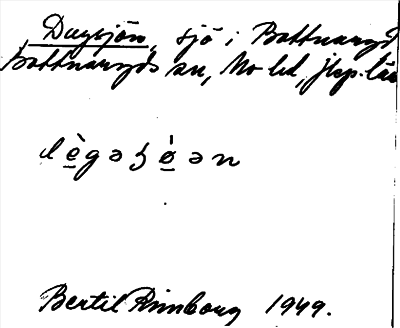 Dagsjön, sjö i Bottnaryd
Bottnaryds sn, Mo hd, Jkp. län
dè̱gəʒø̱̀ən
Bertil Rimborg 1949.